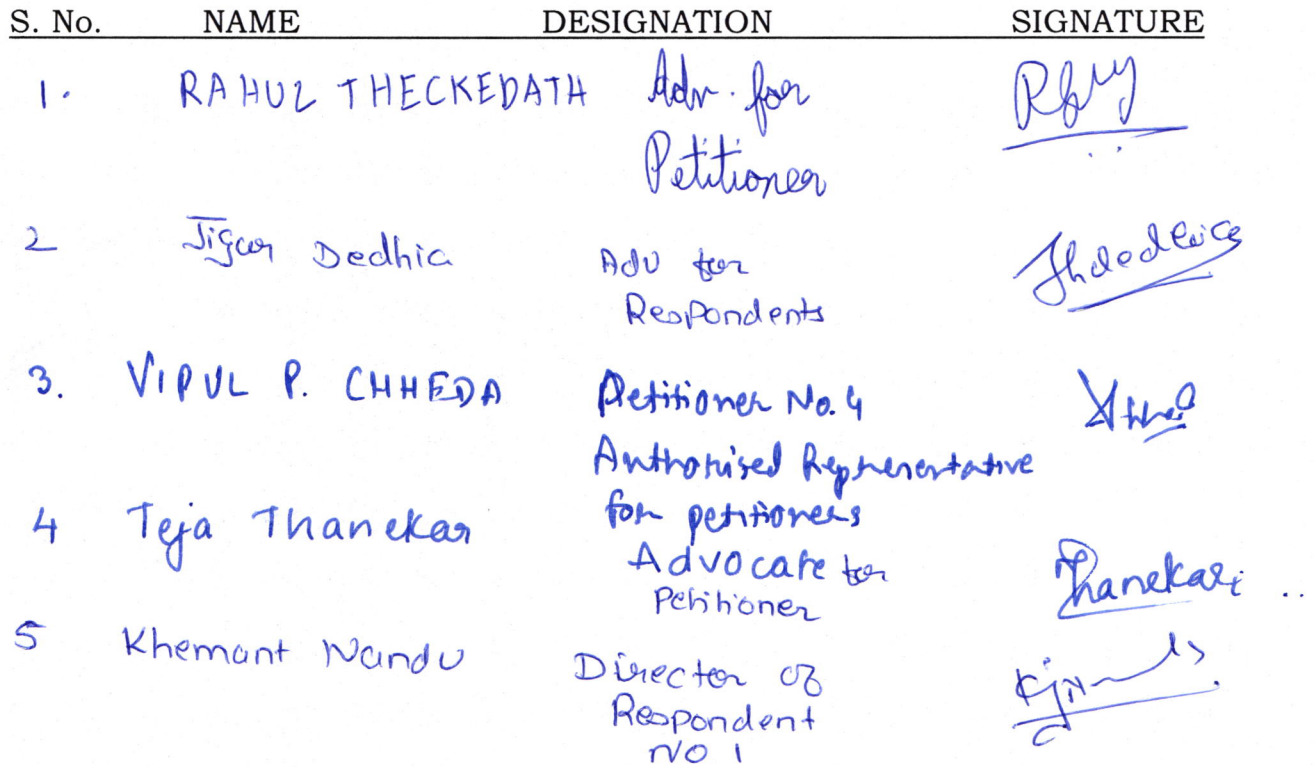 S. No. NAME DESIGNATION SIGNATURE
1. RAHUL THECKEDATH Adv. for
Petitioner
2 Jigar Dedhia Adv for
Respondents
3. VIPUL P. CHHEDA Petitioner No. 4
Authorised Representative
for petitioners
4 Teja Thanekar Advocate for Thanekar
Petitioner
5 Khemant Nandu Director of
Respondent
NO 1